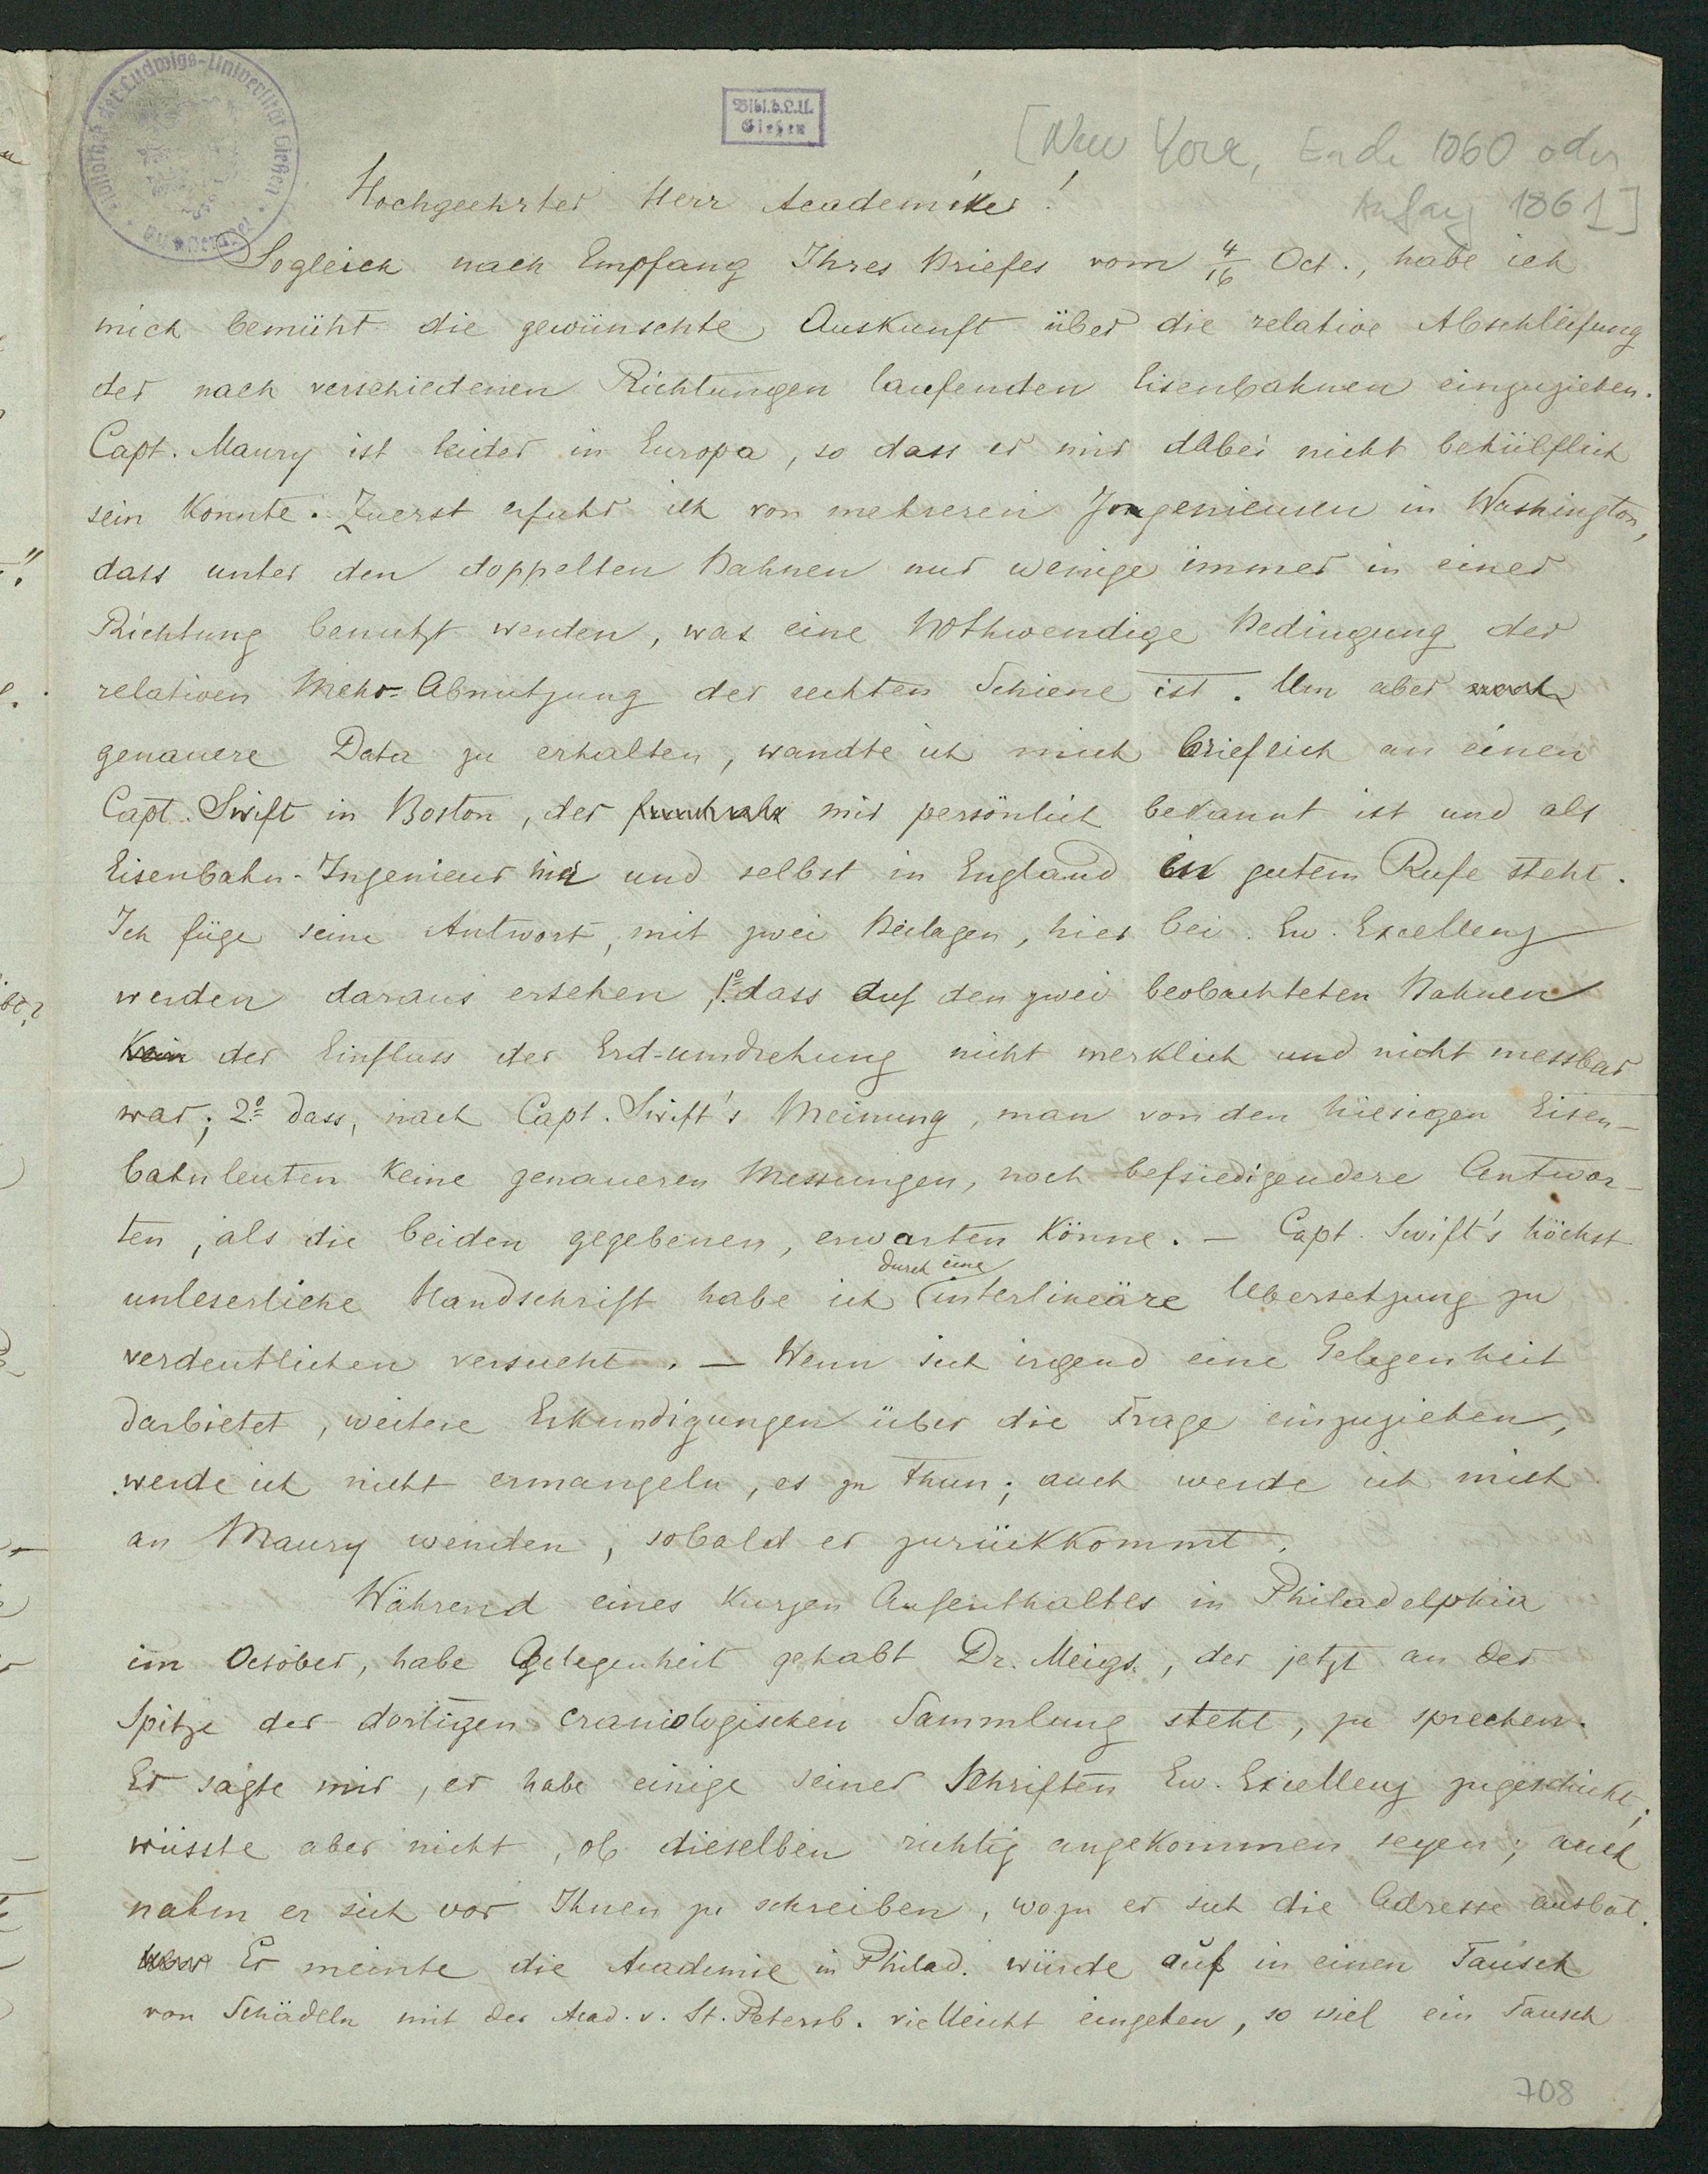 Bibliothek der Ludwigs-Universität Gießen
Bibl.d.L.U.
Gießen
[New York, Ende 1860 oder
Anfang 1861]
Hochgeehrter Herr Academiker!
Sogleich nach Empfang Ihres Briefes vom 4/16 Oct., habe ich
mich bemüht die gewünschte Auskunft über die relative Abschleifung
der nach verschiedenen Richtungen laufenden Eisenbahnen einzuziehen.
Capt. Maury ist leider in Europa, so dass er mir dabei nicht behülflich
sein konnte. Zuerst erfuhr ich von mehreren Ingenieuren in Washington,
dass unter den doppelten Bahnen nur wenige immer in einer
Richtung benutzt werden, was eine nothwendige Bedingung der
relativen Mehr-Abnutzung der rechten Schiene ist. Um aber noch
genauere Data zu erhalten, wandte ich mich brieflich an einen
Capt. Swift in Boston, der mir persönlich bekannt ist und als
Eisenbahn-Ingenieur hier und selbst in England in gutem Rufe steht.
Ich füge seine Antwort, mit zwei Beilagen, hier bei. Ew. Excellenz
werden daraus ersehen 1º dass auf den zwei beobachteten Bahnen
kein der Einfluss der Erd-umdrehung nicht merklich und nicht messbar
war; 2º dass, nach Capt. Swift's Meinung, man von den hiesigen Eisen-
bahnleuten keine genaueren Messungen, noch befriedigendere Antwor-
ten, als die beiden gegebenen, erwarten könne. – Capt. Swift's höchst
durch eine
unleserliche Handschrift habe ich interlineäre Uebersetzung zu
verdeutlichen versucht. – Wenn sich irgend eine Gelegenheit
darbietet, weitere Erkundigungen über die Frage einzuziehen,
werde ich nicht ermangeln, es zu thun; auch werde ich mich
an Maury wenden, sobald er zurückkommt.
Während eines kurzen Aufenthaltes in Philadelphia
im October, habe Gelegenheit gehabt Dr. Meigs, der jetzt an der
Spitze der dortigen craniologischen Sammlung steht, zu sprechen.
Er sagte mir, er habe einige seiner Schriften Ew. Excellenz zugeschickt,
wüsste aber nicht, ob dieselben richtig angekommen seyen; auch
nahm er sich vor Ihnen zu schreiben, wozu er sich die Adresse ausbat.
Er meinte die Academie in Philad. würde auf in einen Tausch
von Schädeln mit der Acad. v. St. Petersb. vielleicht eingehen, so viel ein Tausch
708